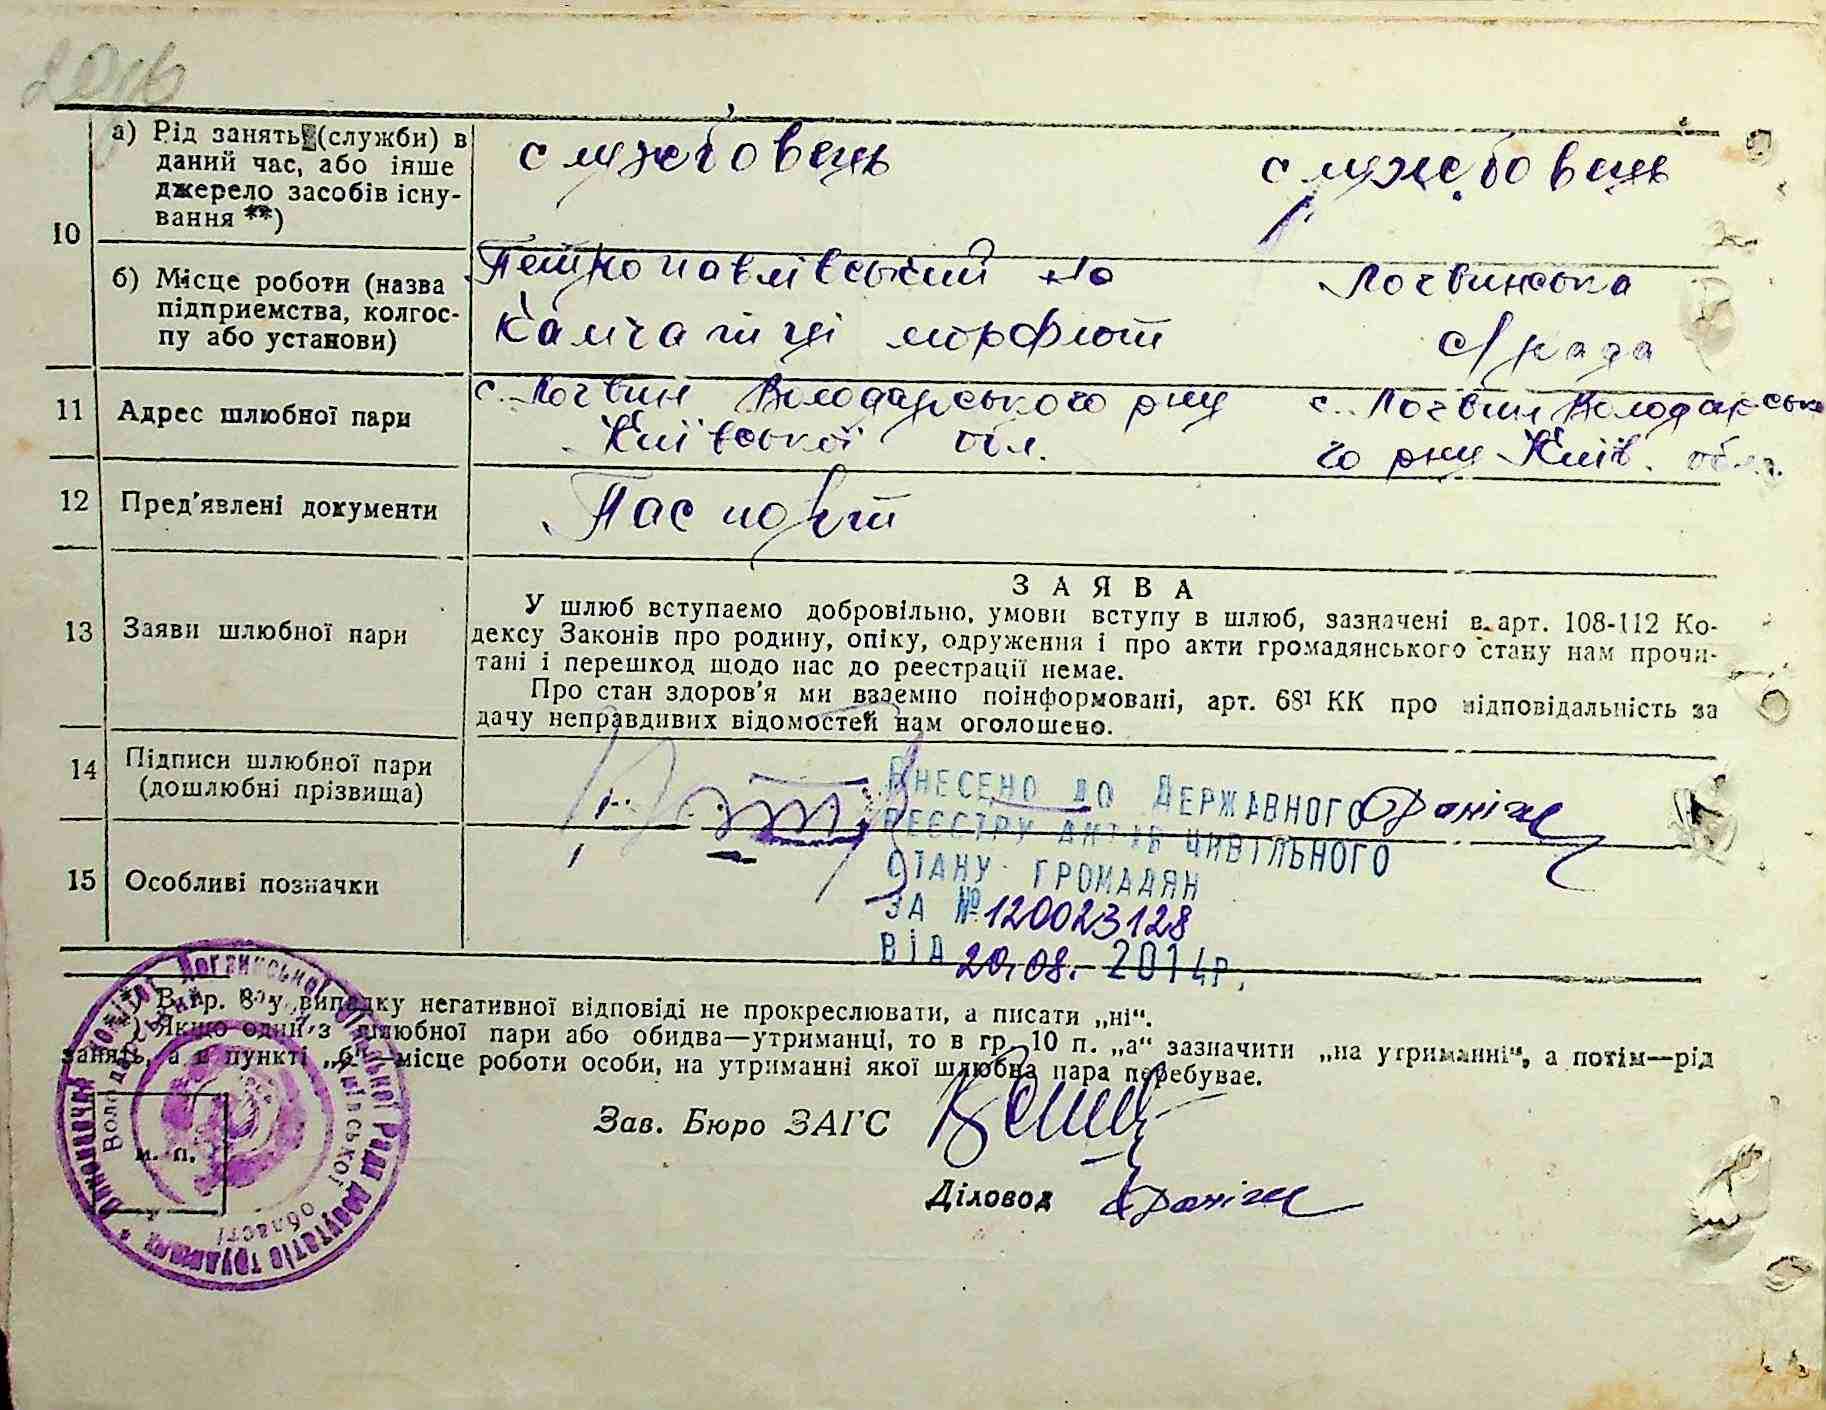 10
а) Рід занять (службы) в
даний час, або інше
джерело засобів існу-
вання **)
службовець
службовець
б) Місце роботи (назва
підприємства, колгос-
пу або установи)
Петропавлівський на
Камчатці морфлот
Логвинська
с/рада
11 Адрес шлюбної пари
с. Логвин Володарського р-ну
Київської обл.
с. Логвин Володарсько
го р-ну Київ. обл.
12 Пред'явлені документи
Паспорт
13 Заяви шлюбної пари
ЗАЯВА
У шлюб вступаемо добровільно, умови вступу в шлюб, зазначені в арт. 108-112 Ко-
дексу Законів про родину, опіку, одруження і про акти громадянського стану нам прочи-
тані і перешкод щодо нас до реестрації немае.
Про стан здоров'я ми взаемно поінформовані, арт. 68¹ КК про відповідальність за
дачу неправдивих відомостей нам оголошено.
14 Підписи шлюбної пари
(дошлюбні прізвища)
15 Особливі позначки
ВНЕСЕНО ДО ДЕРЖАВНОГО
РЕЄСТРУ АКТІВ ЦИВІЛЬНОГО
СТАНУ ГРОМАДЯН
ЗА № 120023128
ВІД 20.08. 2014р.
*) В гр. 8 у випадку негативної відповіді не прокреслювати, а писати „ні“.
**) Якщо один з шлюбної пари або обидва—утриманці, то в гр. 10 п. „а“ зазначити „на утриманні“, а потім—рід
занять, а в пункті „б“—місце роботи особи, на утриманні якої шлюбна пара перебуває.
Зав. Бюро ЗАГС
Діловод
м. п.
Виконавчий комітет Логвинської сільської Ради депутатів трудящих
Володарський район Київської області